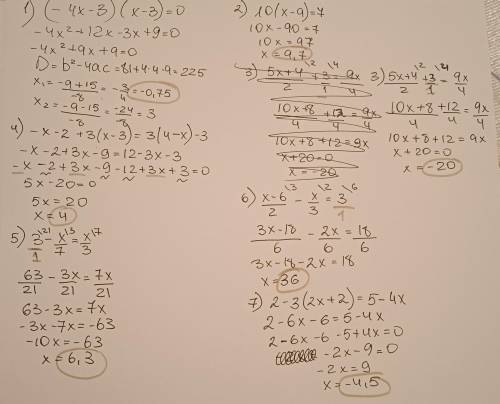 1) (-4x-3)(x-3)=0
-4x²+12x-3x+9=0
-4x²+9x+9=0
D=b²-4ac=81+4·4·9=225
x₁=(-9+15)/-8=-3/4=-0,75
x₂=(-9-15)/-8=-24/-8=3
4) -x-2+3(x-3)=3(4-x)-3
-x-2+3x-9=12-3x-3
-x-2+3x-9-12+3x+3=0
5x-20=0
5x=20
x=4
5) 3/1 \21 - x/7 \3 = x/3 \7
63/21 - 3x/21 = 7x/21
63-3x=7x
-3x-7x=-63
-10x=-63
x=6,3
2) 10(x-9)=7
10x-90=7
10x=97
x=9,7
3) 5x+4/2 \2 + 3/1 \4 = 9x/4
10x+8/4 + 12/4 = 9x/4
10x+8+12=9x
x+20=0
x=-20
3) 5x+4/2 \2 + 3/1 \4 = 9x/4
10x+8/4 + 12/4 = 9x/4
10x+8+12=9x
x+20=0
x=-20
6) x-6/2 \3 - x/3 \2 = 3/1 \6
3x-18/6 - 2x/6 = 18/6
3x-18-2x=18
x=36
7) 2-3(2x+2)=5-4x
2-6x-6=5-4x
2-6x-6-5+4x=0
-2x-9=0
-2x=9
x=-4,5